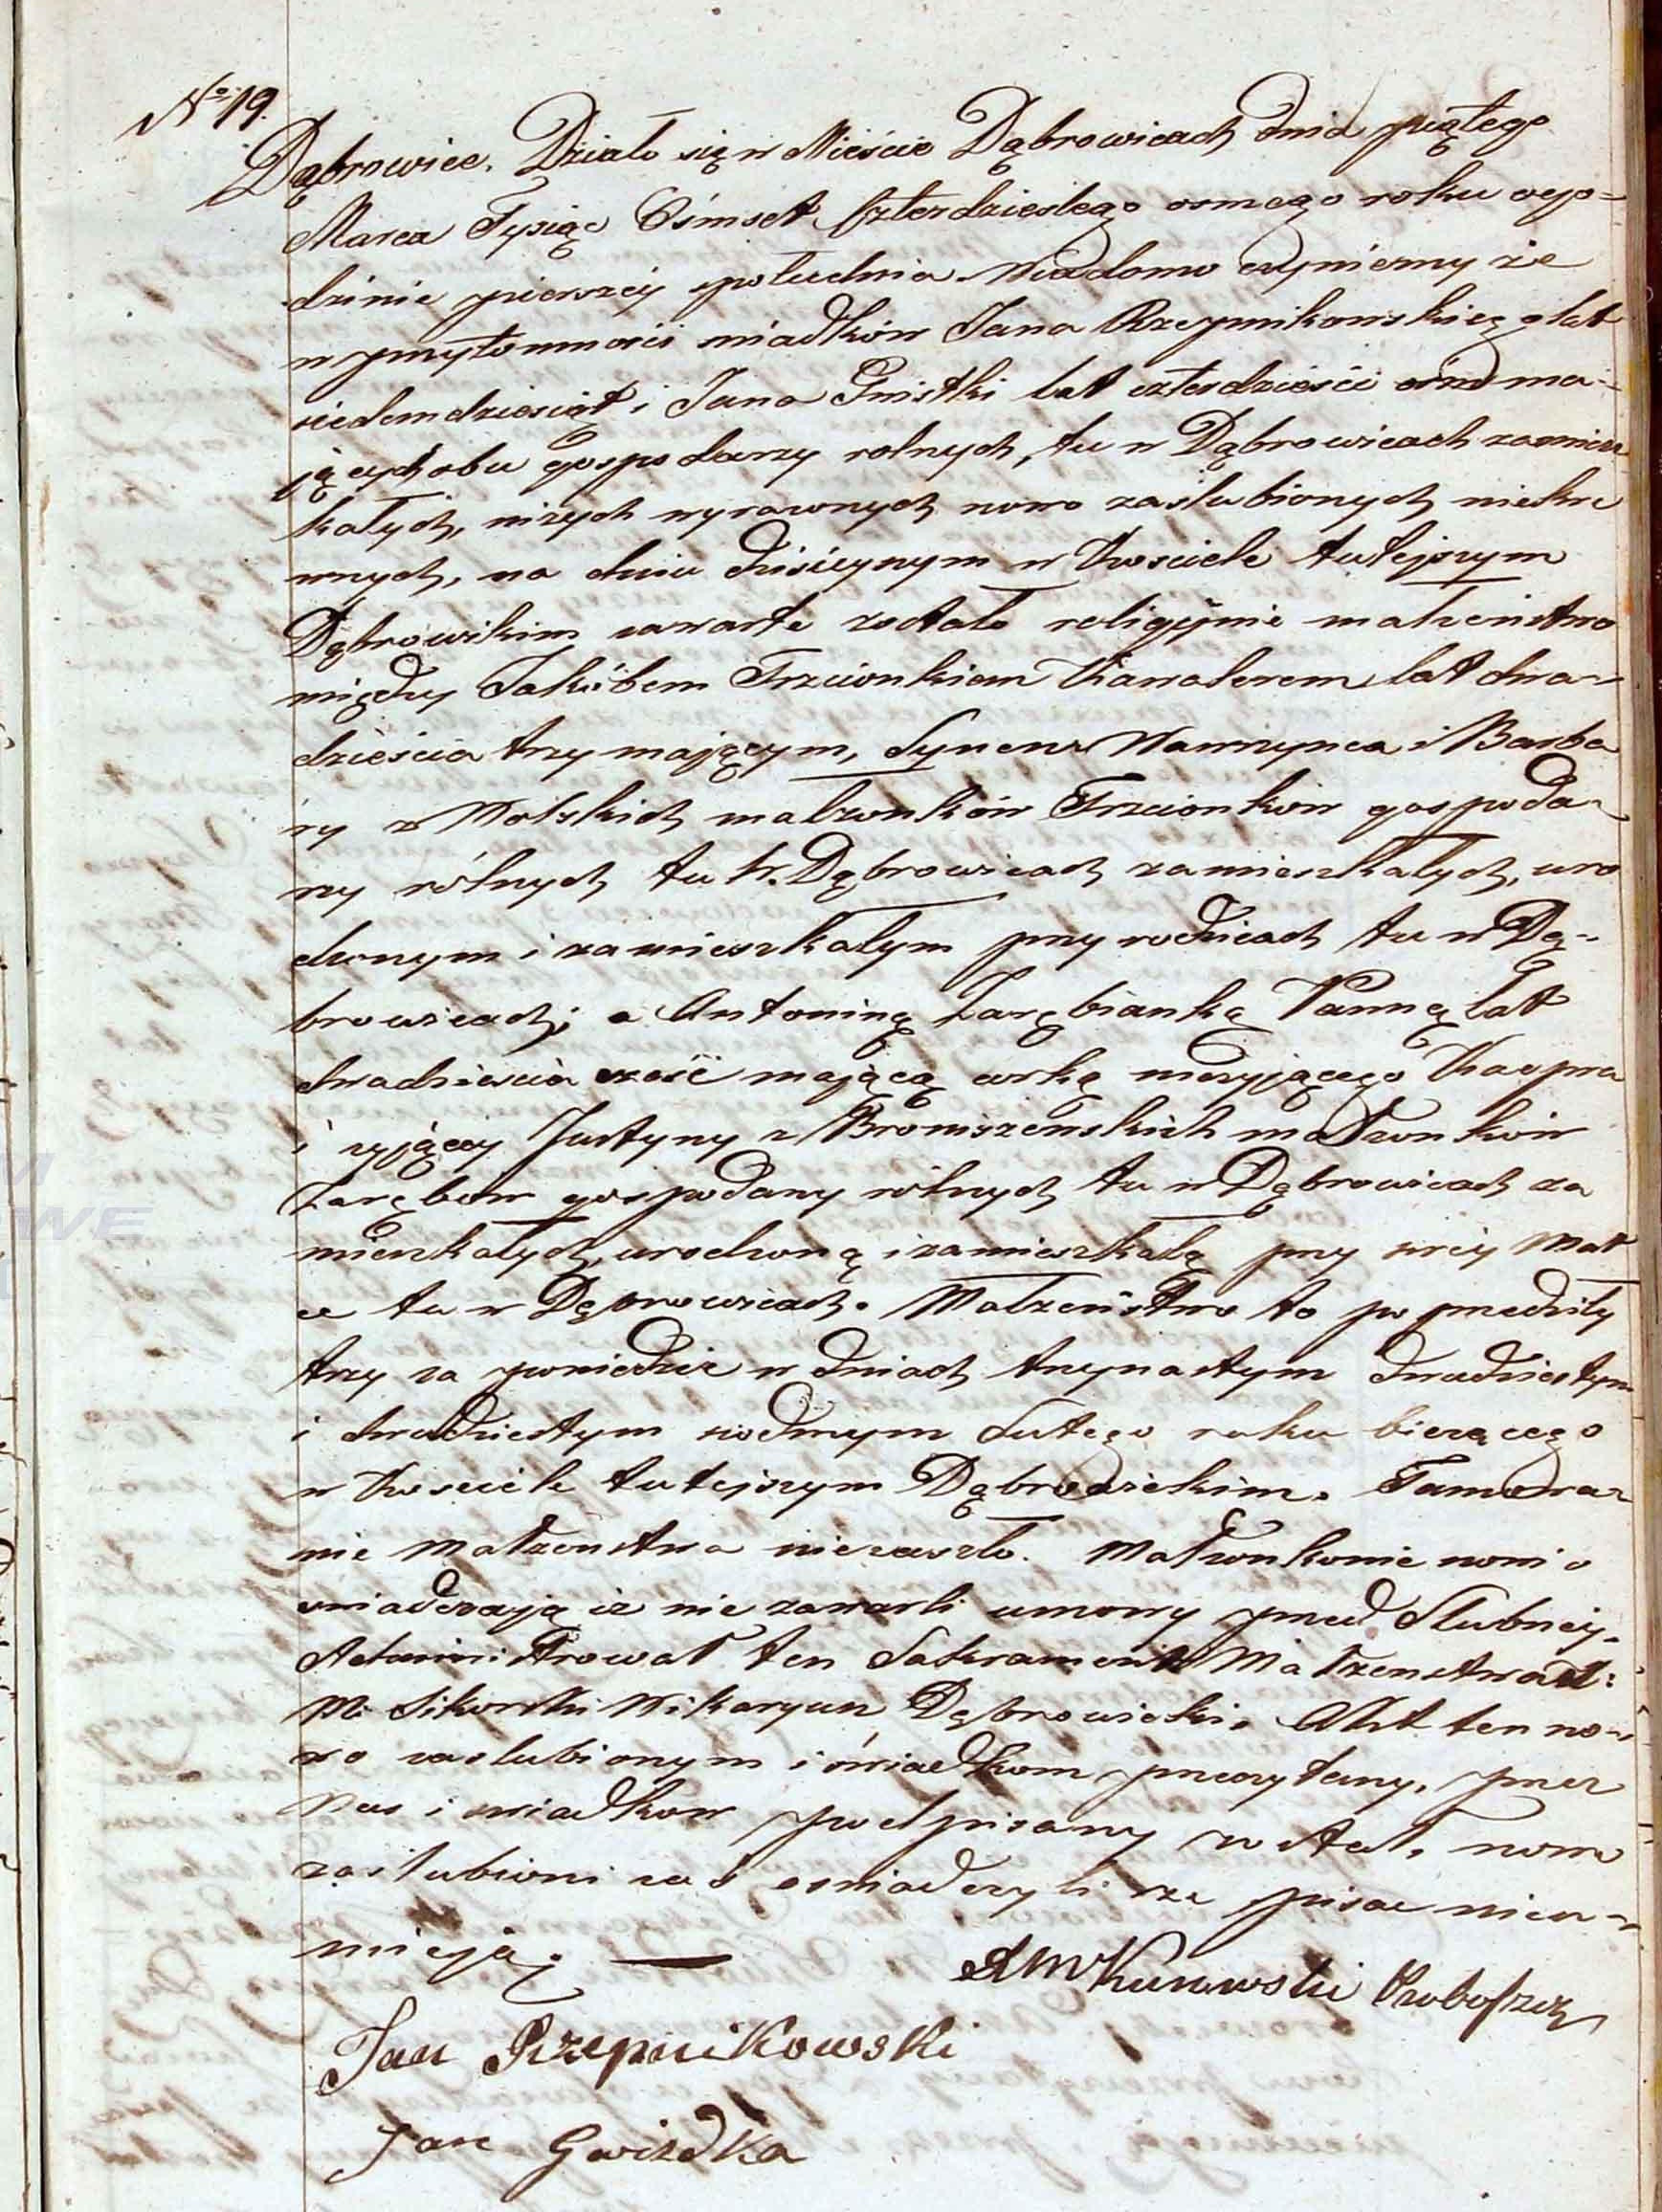 No 19.
Dąbrowice. Działo się w Mieście Dąbrowicach dnia piątego
Marca Tysiąc Ośmset czterdziestego osmego roku ogo=
dzinie pierwszej z południa. Wiadomo czyniemy że
w przytomności swiadków Jana Rzepnikowskiego lat
siedemdziesiąt i Jana Gwistki lat czterdzieści ośm ma=
jących obu gospodarzy rolnych, tu w Dąbrowicach zamiesz
kałych, niżych wyrawnych nowo zaslubionych niekre
wnych, na dniu dzisieyszym w Kosciele tutejszym
Dąbrowikim zawarte zostało religijnie małżeństwo
między Jakóbem Trzcionkiem Kawalerem lat dwa=
dzieścia trzy mającym, Synem Wawrzynca i Barba
ry z Wolskich małzonków Trzcionków gospoda=
rzy rólnych tu w Dąbrowicach zamieszkałych, uro
dzonym i zamieszkałym przy rodzicach tu w Dą=
browicach; a Antoniną Zarębianką Panną lat
dwadziescia sześć mającą corką nieżyjącego Kacpra
i żyjącej Justyny z Broniszeńskich małzonków
Zarębow gospodarzy rólnych tu w Dąbrowicach za
mieszkałych, urodzoną i zamieszkałą przy swej Mat
ce tu w Dąbrowicach. Małżeństwo to po przedziły
trzy za powiedzie w dniach trzynastym dwudziestym
i dwudziestym siodmym Lutego roku bierzącego
w Kosciele tutejszym Dąbrowickim. Tamowa=
nie Małżenstwa niezaszło. Małzonkowie nowi o
swiadczają iż nie zawarli umowy przed Slubnej.
Administrował ten Sakrament Małżenstwa X:
M. Sikorski Wikaryusz Dąbrowicki. Akt ten no=
wo zaslubionym i świadkom przeczytany, przez
Nas i swiadkow podpisany został, nowo
zaslubieni zaś oswiadczyli że pisac nieu=
mieją. —
X M Kunowski Proboszcz
Jan Rzepnikowski
Jan Gwizdka